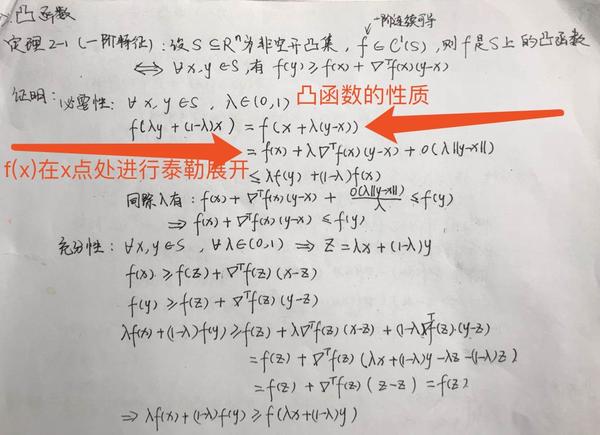 凸函数
一阶连续可导
定理2-1 (一阶特征): 设 S ⊆ Rⁿ为非空开凸集, f ∈ C¹(S), 则 f 是 S 上的凸函数
⇔ ∀ x, y ∈ S, 有 f(y) ≥ f(x) + ∇ᵀf(x)(y-x)
证明: 必要性: ∀ x, y ∈ S, λ ∈ (0,1) 凸函数的性质
f(λy + (1-λ)x) = f(x + λ(y-x))
= f(x) + λ∇ᵀf(x)(y-x) + o(λ||y-x||)
f(x)在x点处进行泰勒展开
≤ λf(y) + (1-λ)f(x)
同除λ有: f(x) + ∇ᵀf(x)(y-x) + o(λ||y-x||)/λ ≤ f(y)
⇒ f(x) + ∇ᵀf(x)(y-x) ≤ f(y)
充分性: ∀ x, y ∈ S, ∀ λ ∈ (0,1) ⇒ z = λx + (1-λ)y
f(x) ≥ f(z) + ∇ᵀf(z)(x-z)
f(y) ≥ f(z) + ∇ᵀf(z)(y-z)
λf(x) + (1-λ)f(y) ≥ f(z) + λ∇ᵀf(z)(x-z) + (1-λ)∇ᵀf(z)(y-z)
= f(z) + ∇ᵀf(z)(λx + (1-λ)y - λz - (1-λ)z)
= f(z) + ∇ᵀf(z)(z-z) = f(z)
⇒ λf(x) + (1-λ)f(y) ≥ f(λx + (1-λ)y)